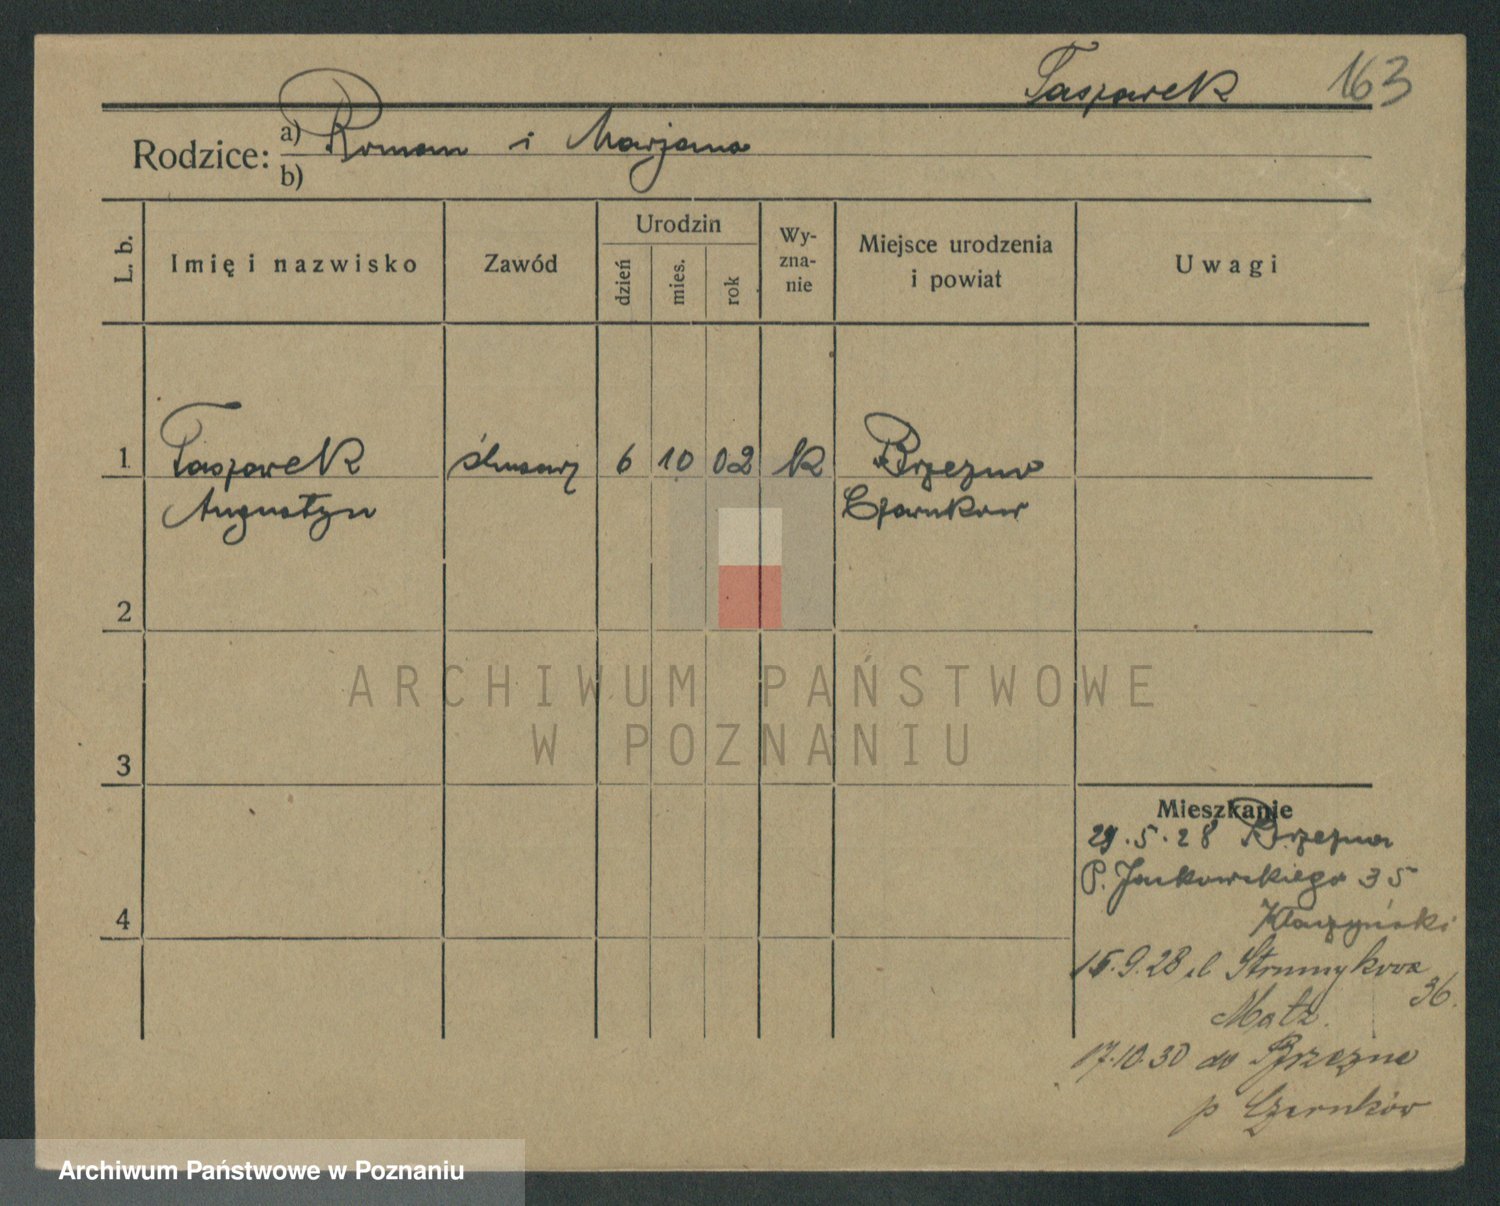 Taszarek 163
Rodzice: a) Roman i Marjana
b)
L. b. Imię i nazwisko Zawód Urodzin dzień mies. rok Wy-zna-nie Miejsce urodzenia i powiat Uwagi
1 Taszarek ślusarz 6 10 02 k Brzezno
Augustyn Czarnkow
2
ARCHIWUM PAŃSTWOWE
W POZNANIU
3
Mieszkanie
29.5.28 Brzezna
P. Jackowskiego 35
Kłaczyński
15.9.28 ul Strumykowa
36.
Matz.
17.10.30 do Brzezno
p Czarnków
4
Archiwum Państwowe w Poznaniu